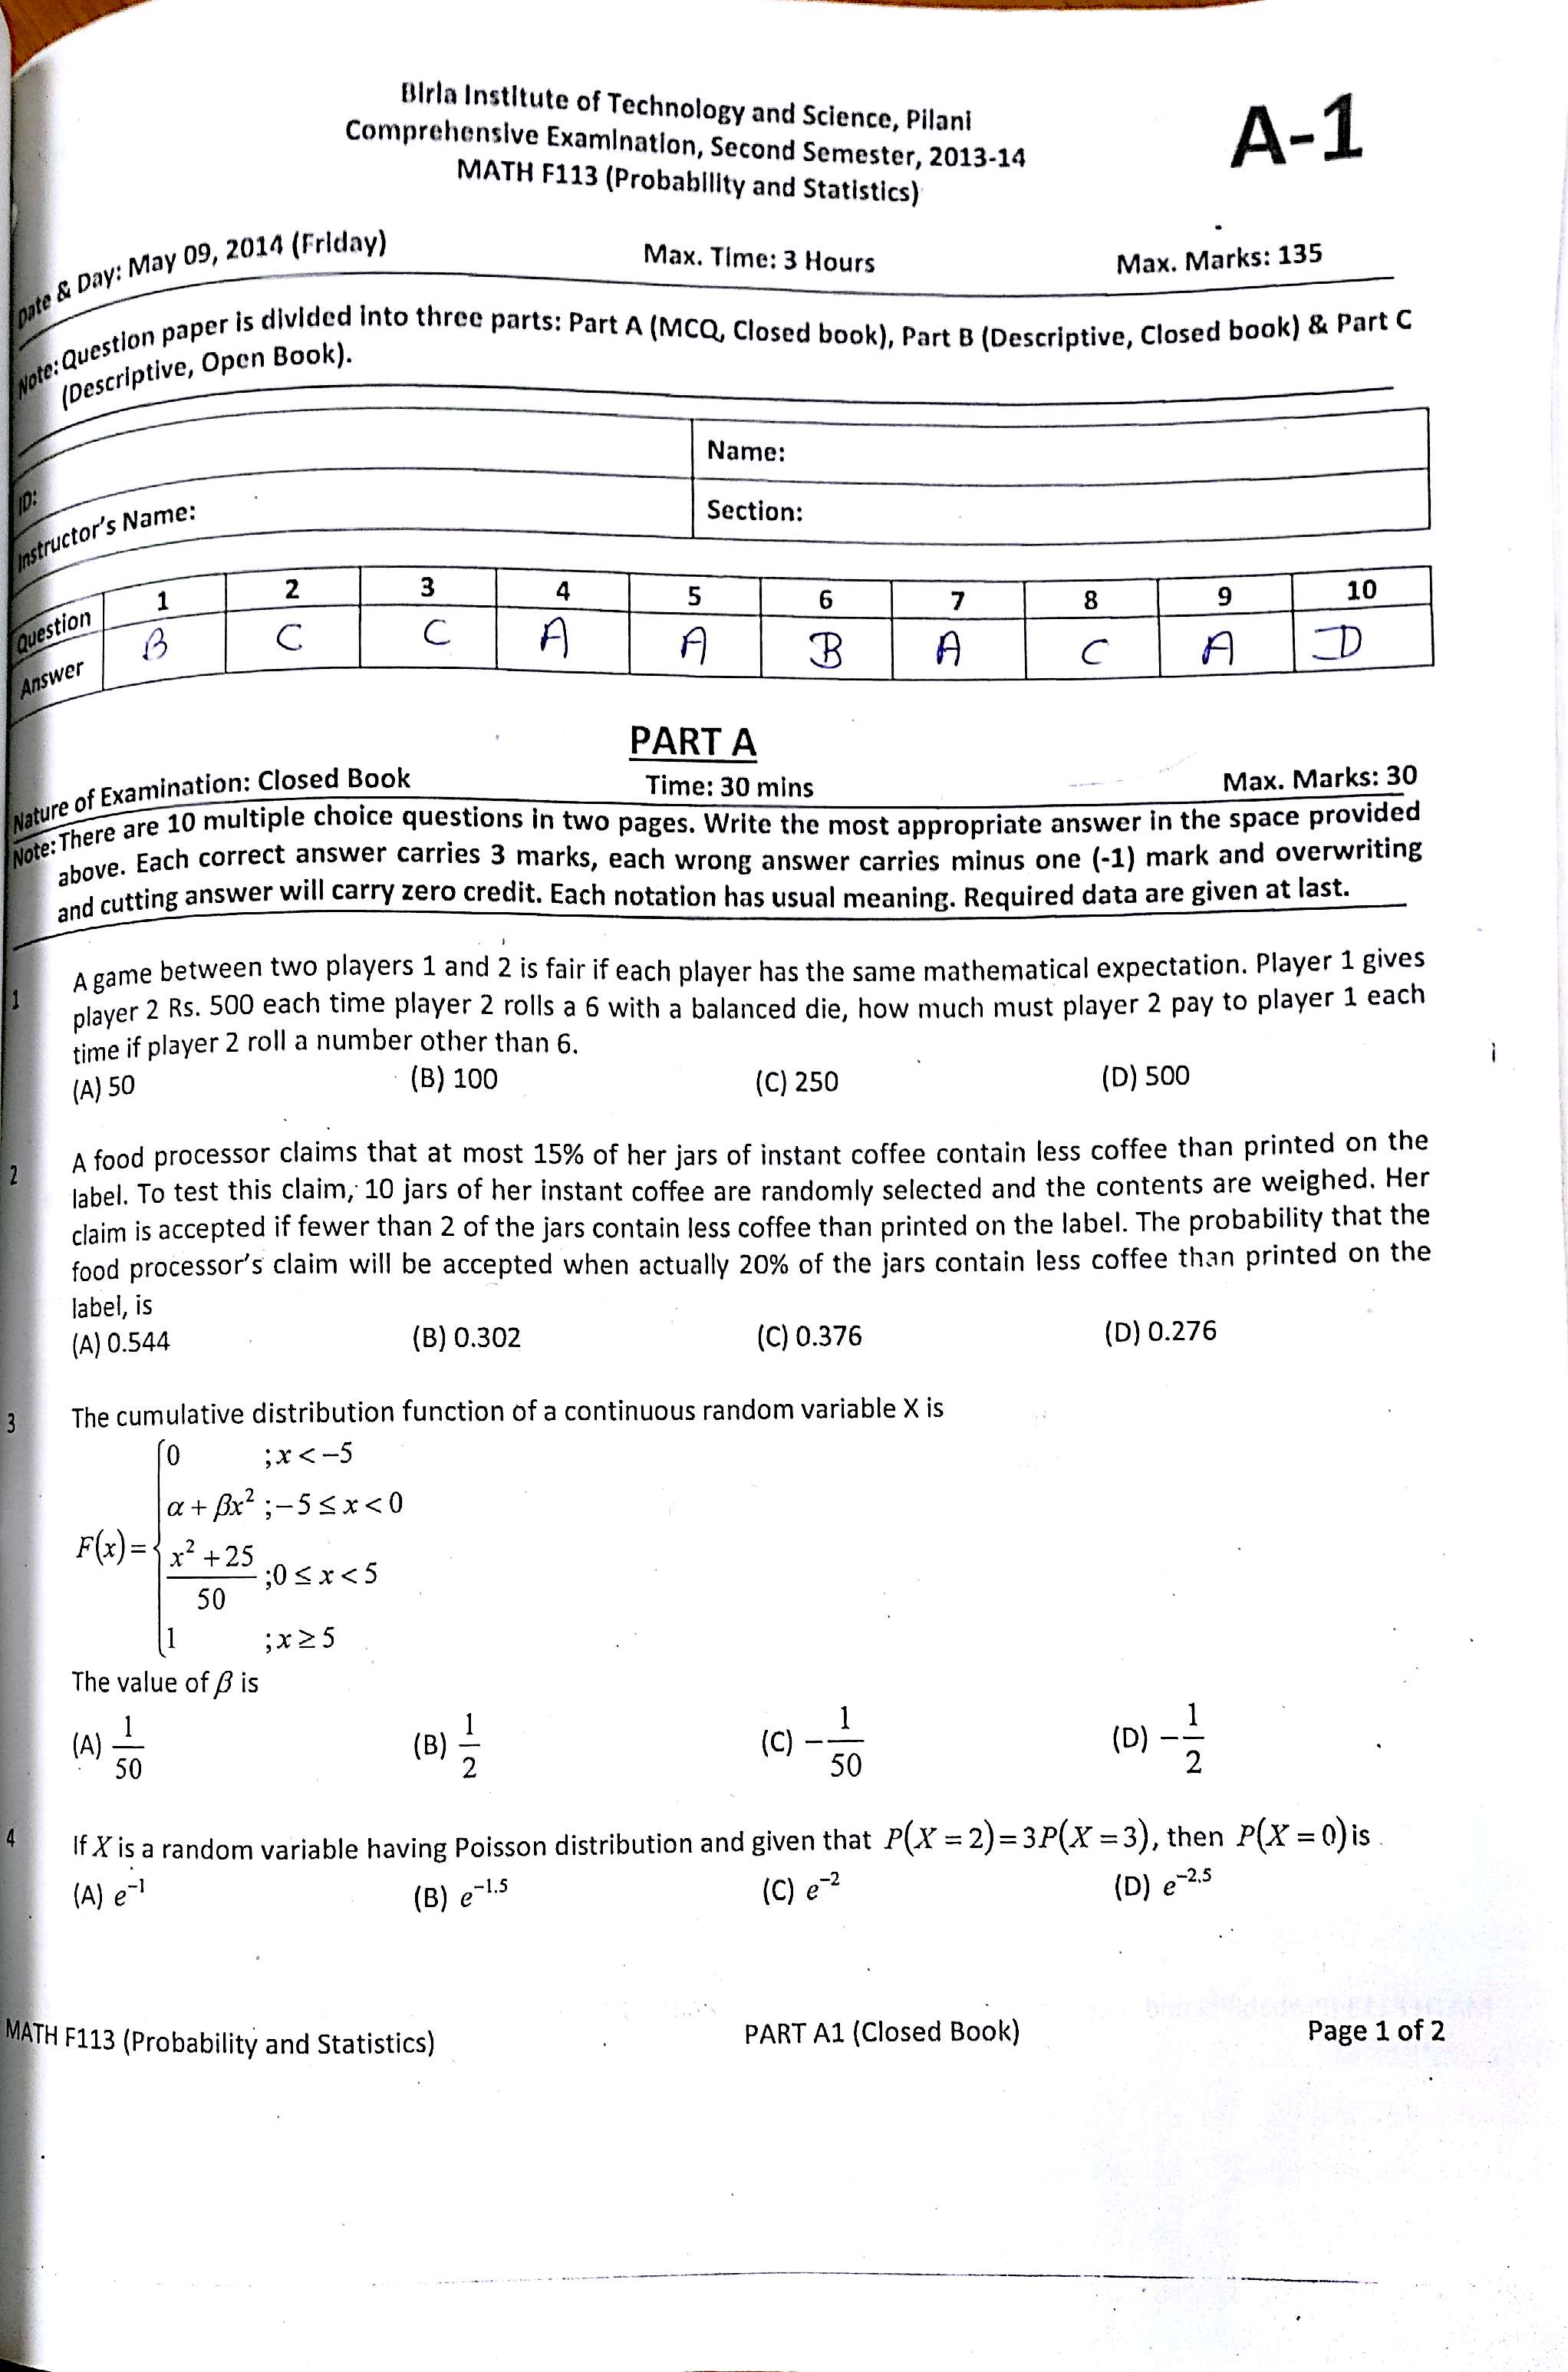 Birla Institute of Technology and Science, Pilani
Comprehensive Examination, Second Semester, 2013-14
MATH F113 (Probability and Statistics)
A-1
Date & Day: May 09, 2014 (Friday) Max. Time: 3 Hours Max. Marks: 135
Note: Question paper is divided into three parts: Part A (MCQ, Closed book), Part B (Descriptive, Closed book) & Part C
(Descriptive, Open Book).
ID: Name:
Instructor's Name: Section:
Question 1 2 3 4 5 6 7 8 9 10
Answer B C C A A B A C A D
PART A
Nature of Examination: Closed Book Time: 30 mins Max. Marks: 30
Note: There are 10 multiple choice questions in two pages. Write the most appropriate answer in the space provided
above. Each correct answer carries 3 marks, each wrong answer carries minus one (-1) mark and overwriting
and cutting answer will carry zero credit. Each notation has usual meaning. Required data are given at last.
1 A game between two players 1 and 2 is fair if each player has the same mathematical expectation. Player 1 gives
player 2 Rs. 500 each time player 2 rolls a 6 with a balanced die, how much must player 2 pay to player 1 each
time if player 2 roll a number other than 6.
(A) 50 (B) 100 (C) 250 (D) 500
2 A food processor claims that at most 15% of her jars of instant coffee contain less coffee than printed on the
label. To test this claim, 10 jars of her instant coffee are randomly selected and the contents are weighed. Her
claim is accepted if fewer than 2 of the jars contain less coffee than printed on the label. The probability that the
food processor's claim will be accepted when actually 20% of the jars contain less coffee than printed on the
label, is
(A) 0.544 (B) 0.302 (C) 0.376 (D) 0.276
3 The cumulative distribution function of a continuous random variable X is
0 ;x < −5
α + βx² ;−5 ≤ x < 0
F(x) = (x² + 25)/50 ;0 ≤ x < 5
1 ;x ≥ 5
The value of β is
(A) 1/50 (B) 1/2 (C) −1/50 (D) −1/2
4 If X is a random variable having Poisson distribution and given that P(X = 2) = 3P(X = 3), then P(X = 0) is
(A) e⁻¹ (B) e^−1.5 (C) e⁻² (D) e^−2.5
MATH F113 (Probability and Statistics) PART A1 (Closed Book) Page 1 of 2